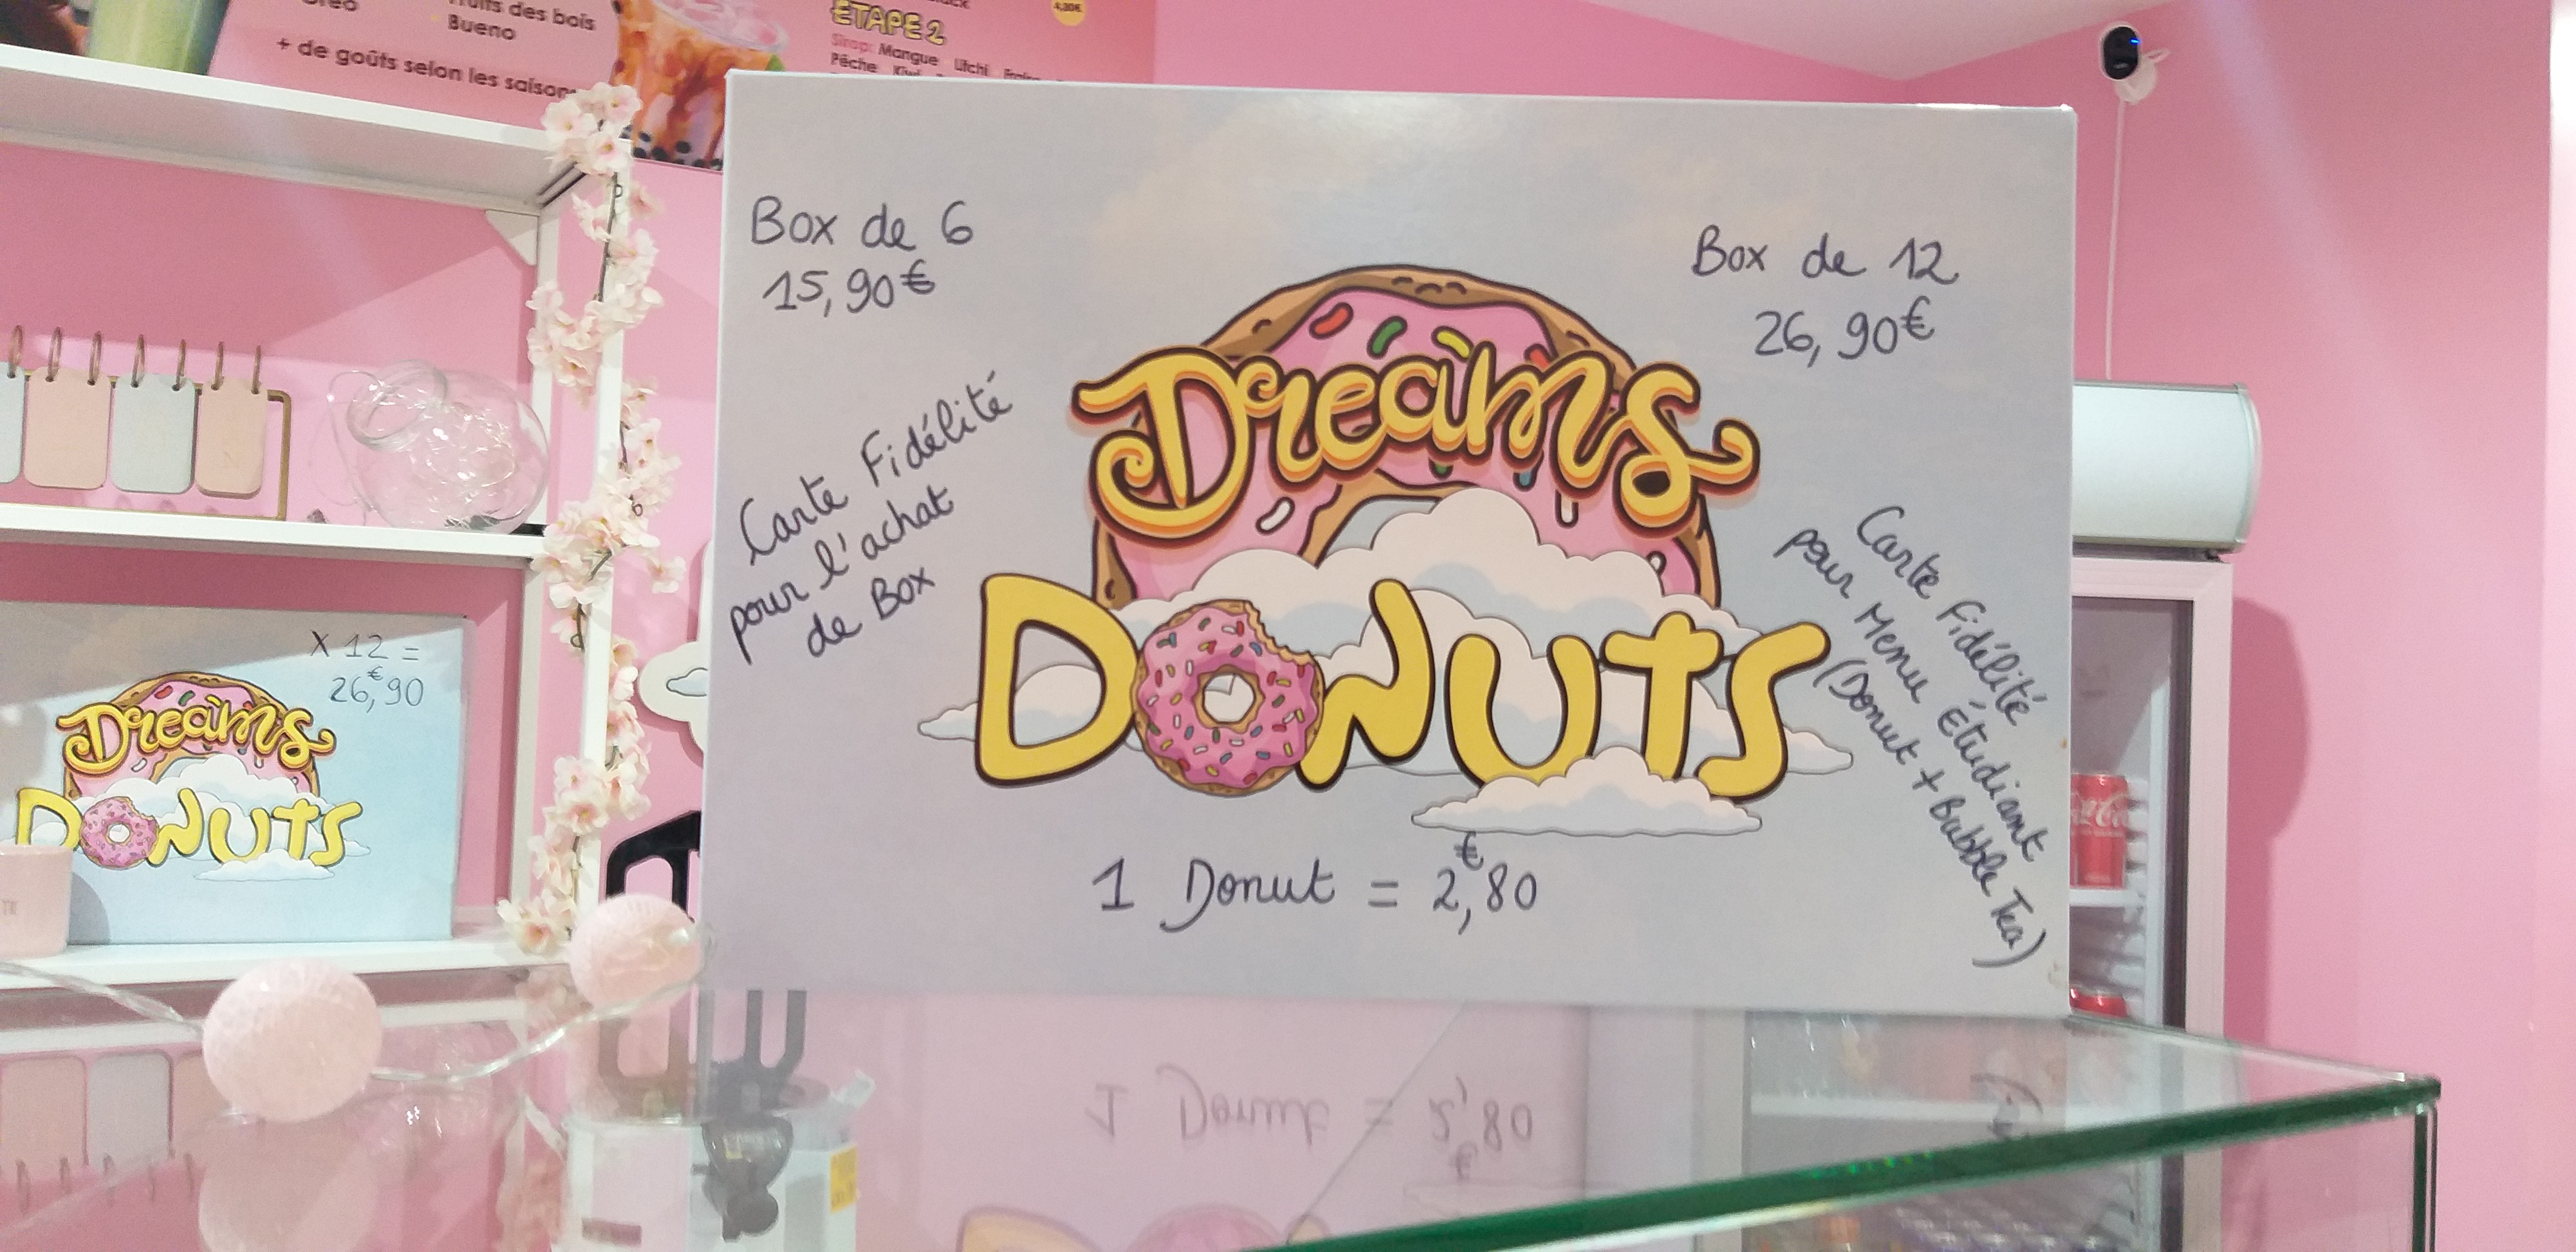 Fruits des bois
Bueno
+ de goûts selon les saisons
4,50€
ETAPE 2
Sirop: Mangue Litchi Fraise
Pêche Kiwi
Box de 6
15,90€
Box de 12
26,90€
Carte Fidélité
pour l'achat
de Box
Dreams
DONUTS
Carte Fidélité
pour Menu Étudiant
(Donut + Bubble Tea)
1 Donut = 2,80
€
X 12 =
26,90
€
Dreams
DONUTS